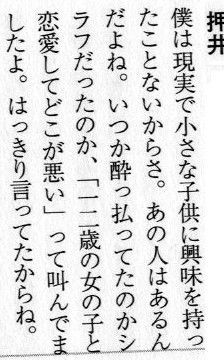 押井
僕は現実で小さな子供に興味を持っ
たことないからさ。あの人はあるん
だよね。いつか酔っ払ってたのかシ
ラフだったのか、「一二歳の女の子と
恋愛してどこが悪い」って叫んでま
したよ。はっきり言ってたからね。